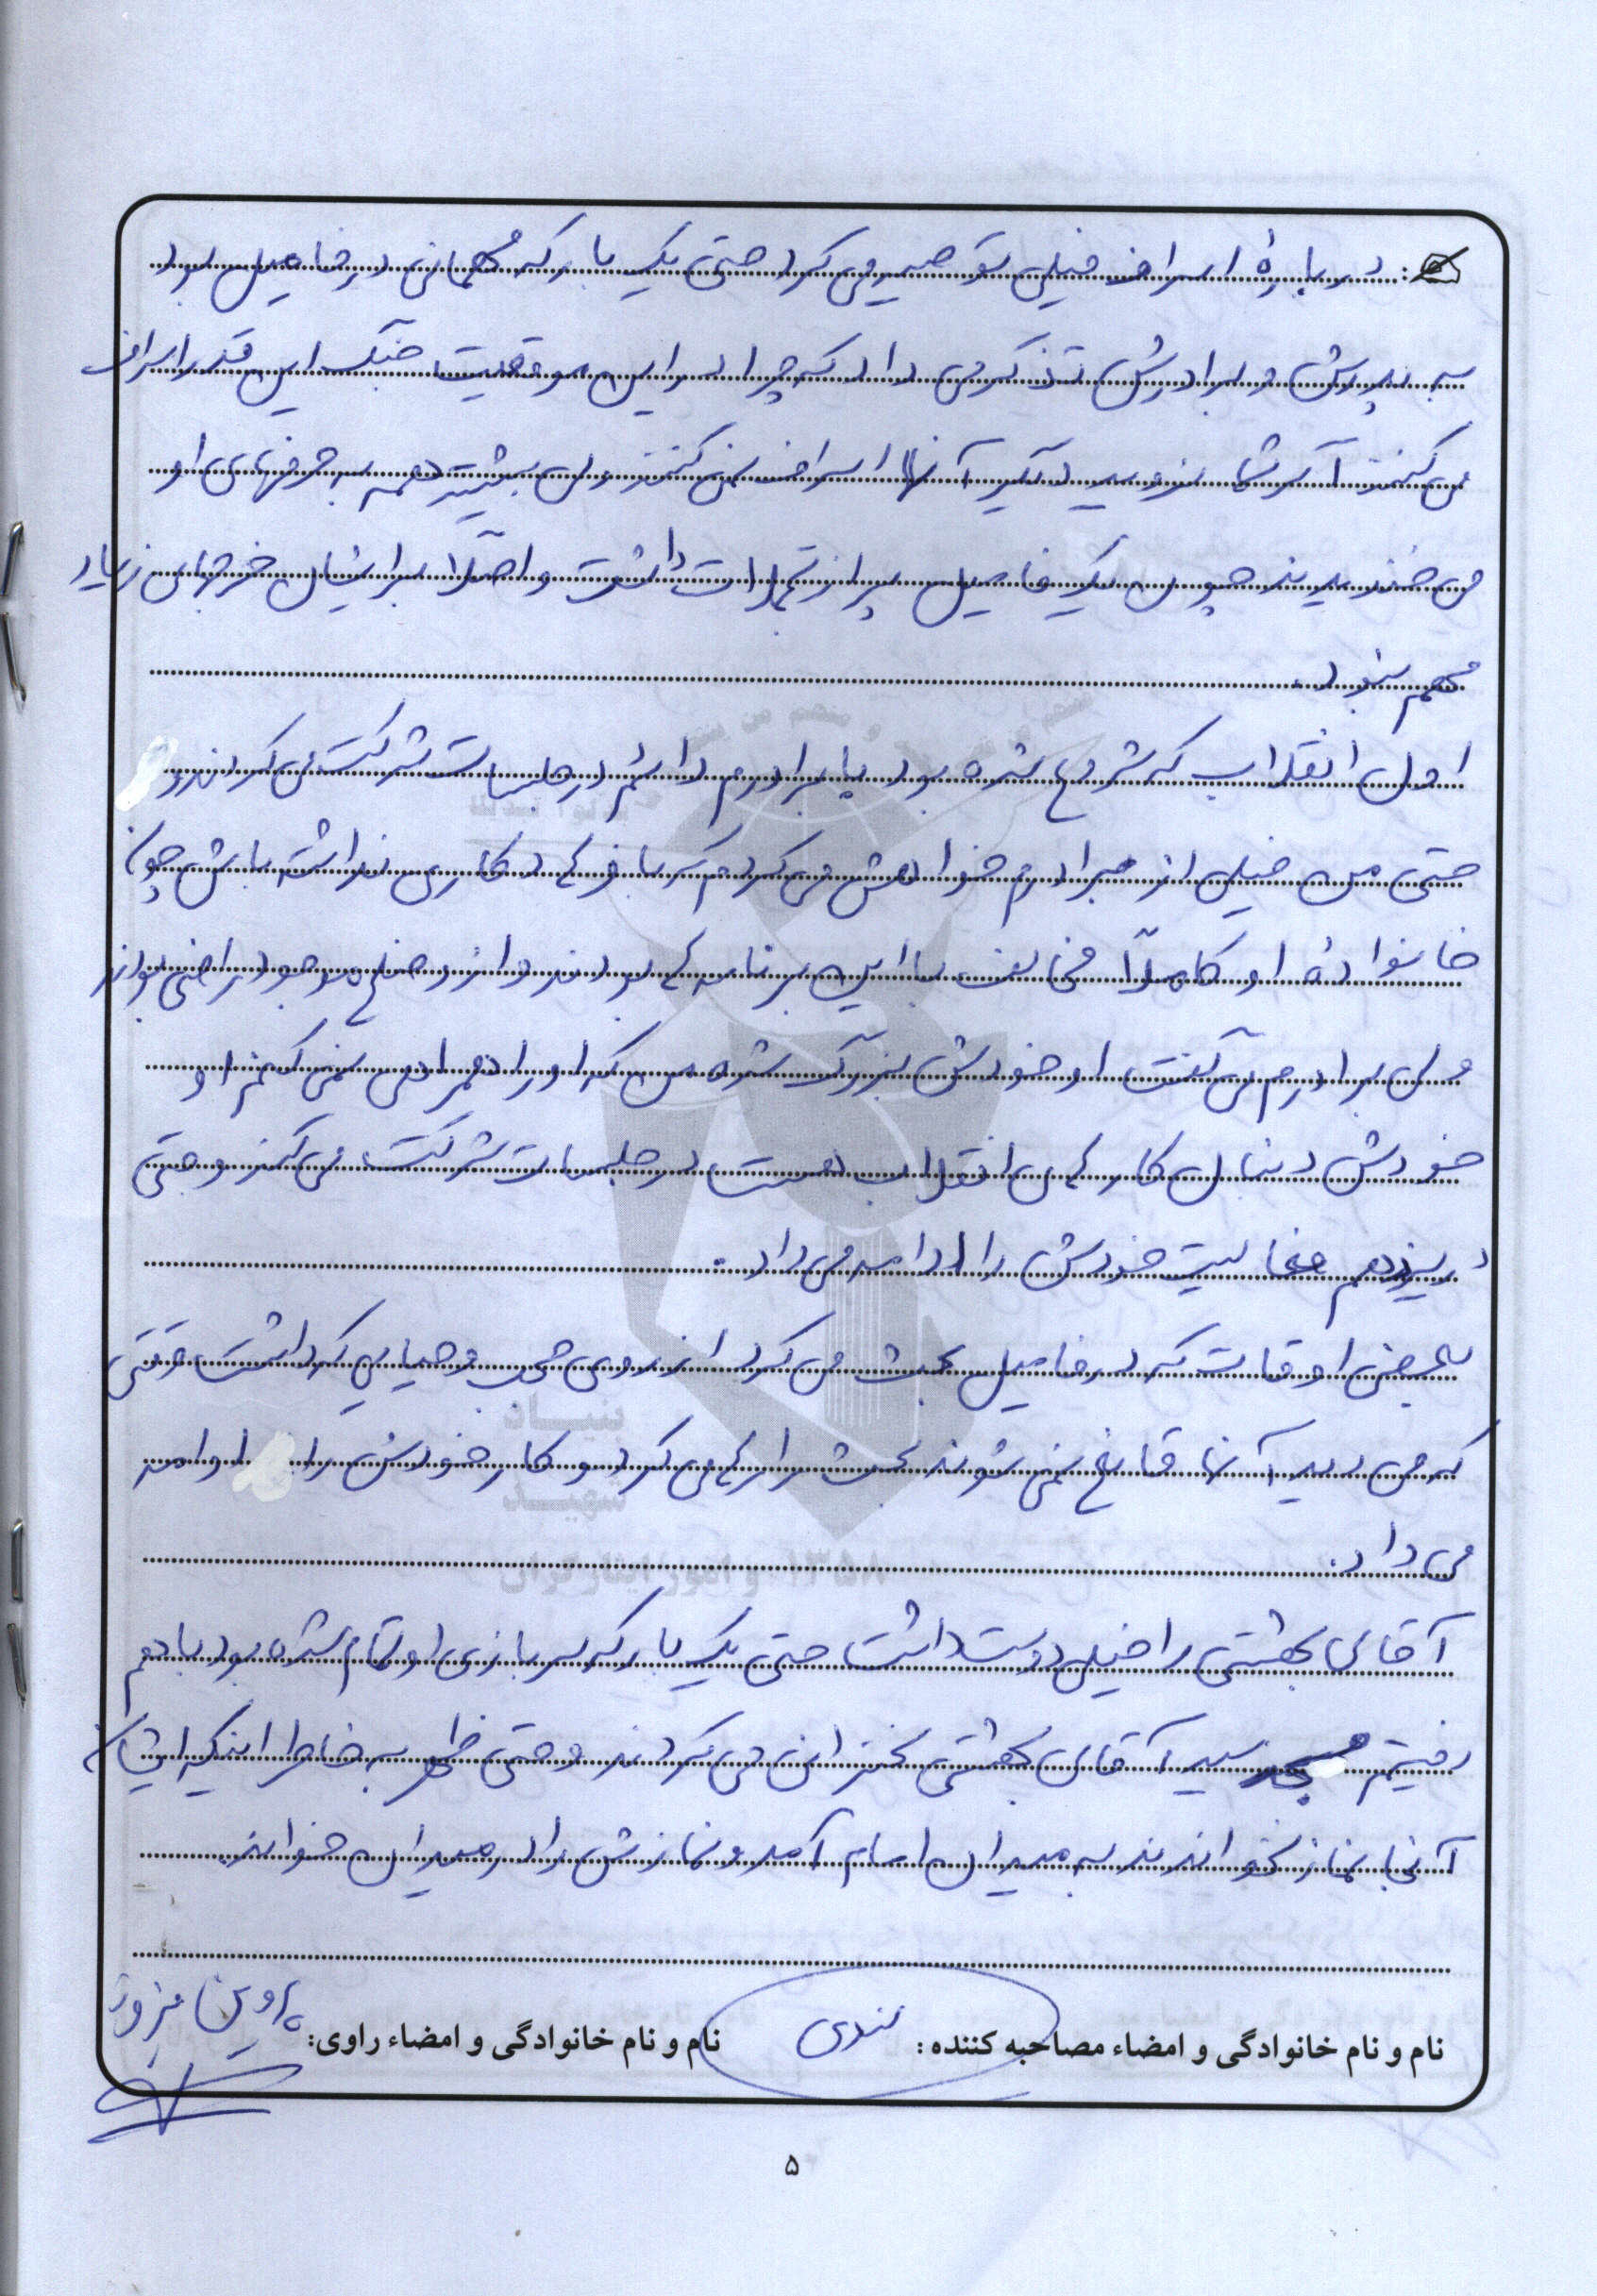 درباره اسراف خیلی توصیه می کرد حتی یک بار که مهمانی در فامیل بود
به پدرش و برادرش تذکر می داد که چرا در این موقعیت جنگ این قدر اسراف
می کنند اگر شما نروید دیگر آنها اسراف نمی کنند ولی بیشتر همه به حرفهای او
می خندیدند چون یک فامیل پر از تجملات داشت و اصلاً برایشان خرجهای زیاد
مهم نبود.
اول انقلاب که شروع شده بود با برادرم دائم در جلسات شرکت می کردند و
حتی من خیلی از برادرم خواهش می کردم که با فرهاد کاری نداشته باش چون
خانواده او کاملاً مخالف با این برنامه ها بودند و از وضع موجود راضی بودند
ولی برادرم می گفت او خودش بزرگ شده من که او را همراهی نمی کنم او
خودش دنبال کارهای انقلاب هست در جلسات شرکت می کند و حتی
در یزد هم فعالیت خودش را ادامه می داد.
بعضی اوقات که در فامیل بحث می کرد از روی حجب و حیایی که داشت وقتی
که می دید آنها قانع نمی شوند بحث را رها می کرد و کار خودش را ادامه
می داد.
آقای بهشتی را خیلی دوست داشت حتی یک بار که سربازی او تمام شده بود با هم
رفتیم مسجد سید آقای بهشتی سخنرانی می کردند و حتی ظهر به خاطر اینکه ایشان
آنجا نماز نخواندند به میدان امام آمد و نمازش را در میدان خواند.
نام و نام خانوادگی و امضاء مصاحبه کننده :
نام و نام خانوادگی و امضاء راوی: پروین
۵